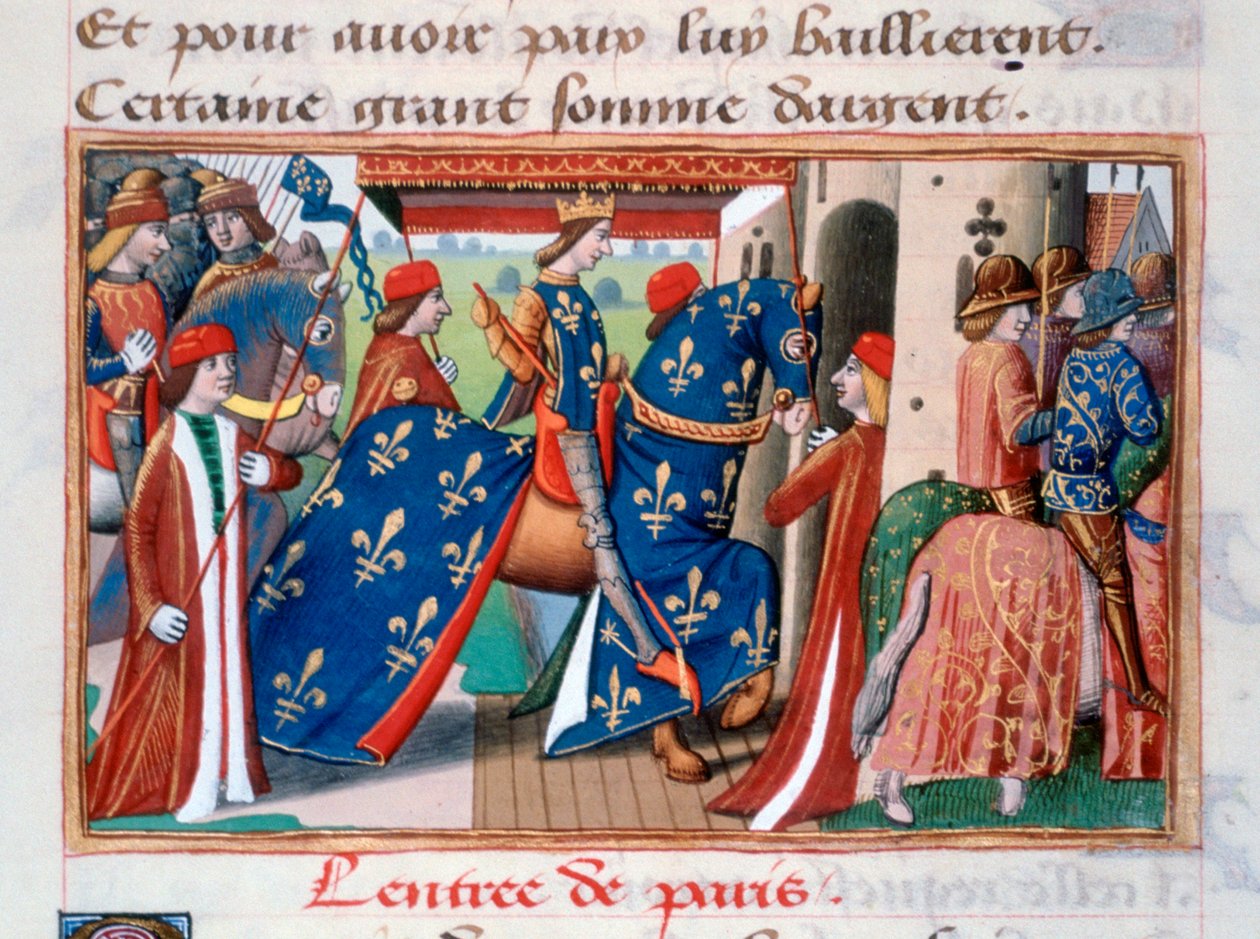 Et pour auoir paix luy baillierent.
Certaine grant somme dargent.
Lentree de paris.